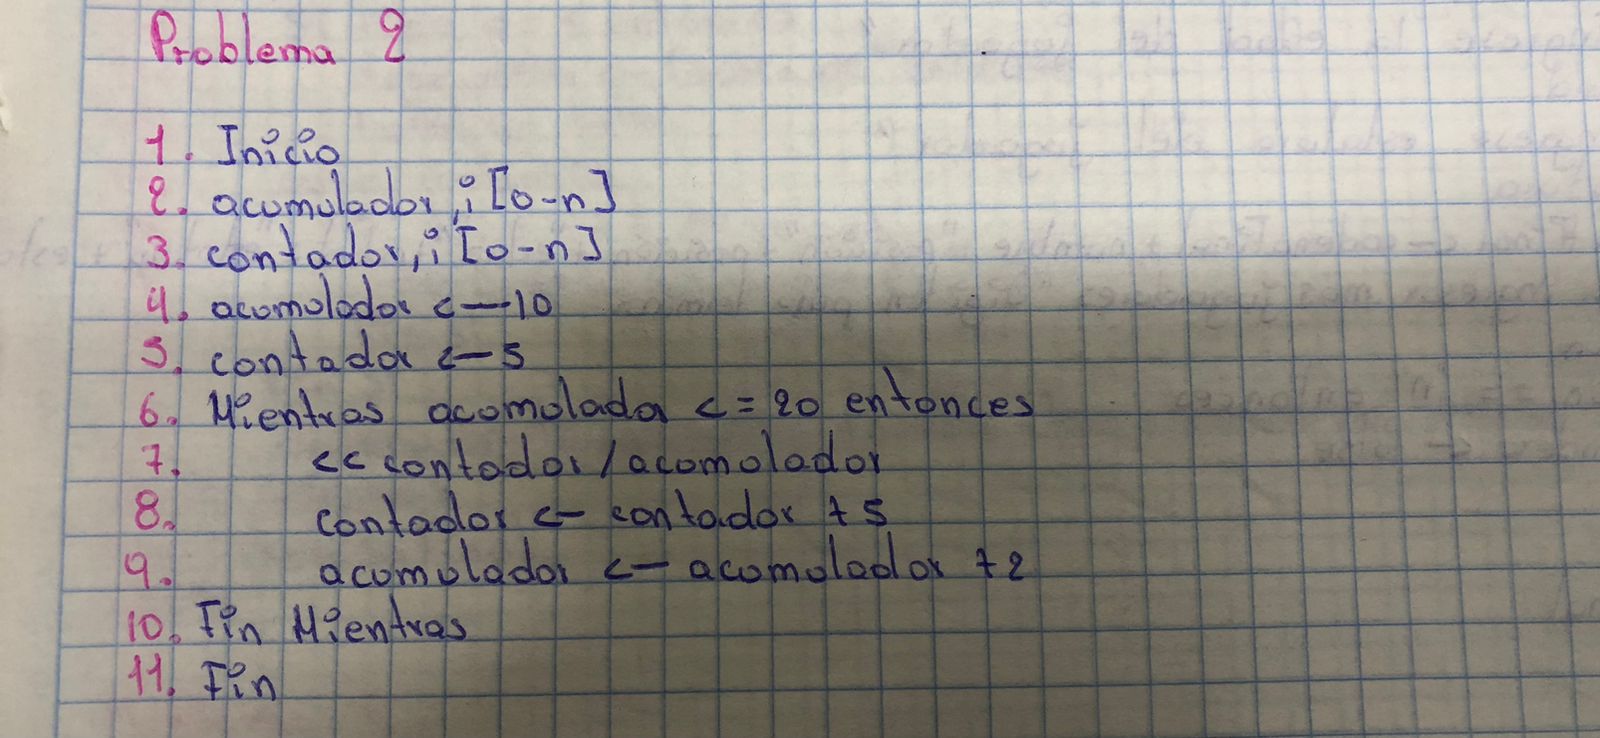 Problema 2
1. Inicio
2. acumulador, i [0-n]
3. contador, i [0-n]
4. acomolador <—10
5. contador <—5
6. Mientras acomolador <= 20 entonces
7. << contador / acomolador
8. contador <— contador + 5
9. acomulador <— acomolador + 2
10. Fin Mientras
11. Fin